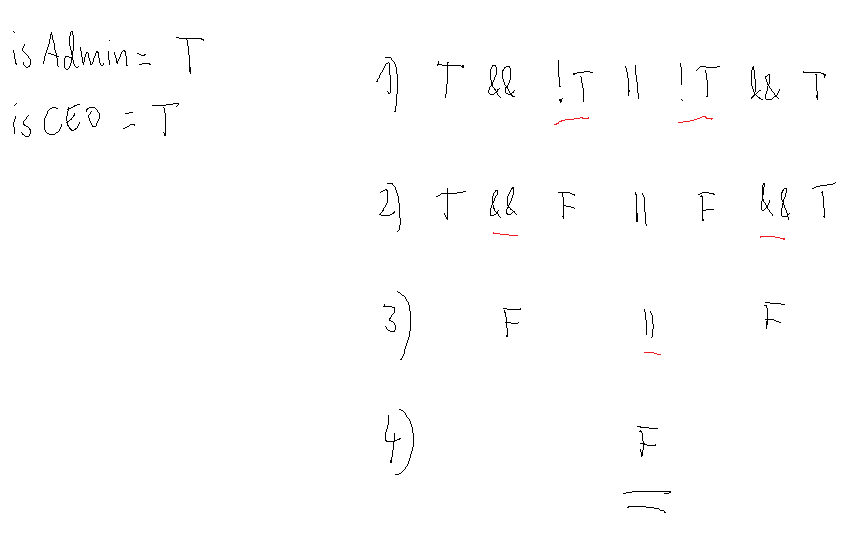 isAdmin = T
isCEO = T
1) T && !T || !T && T
2) T && F || F && T
3) F || F
4) F